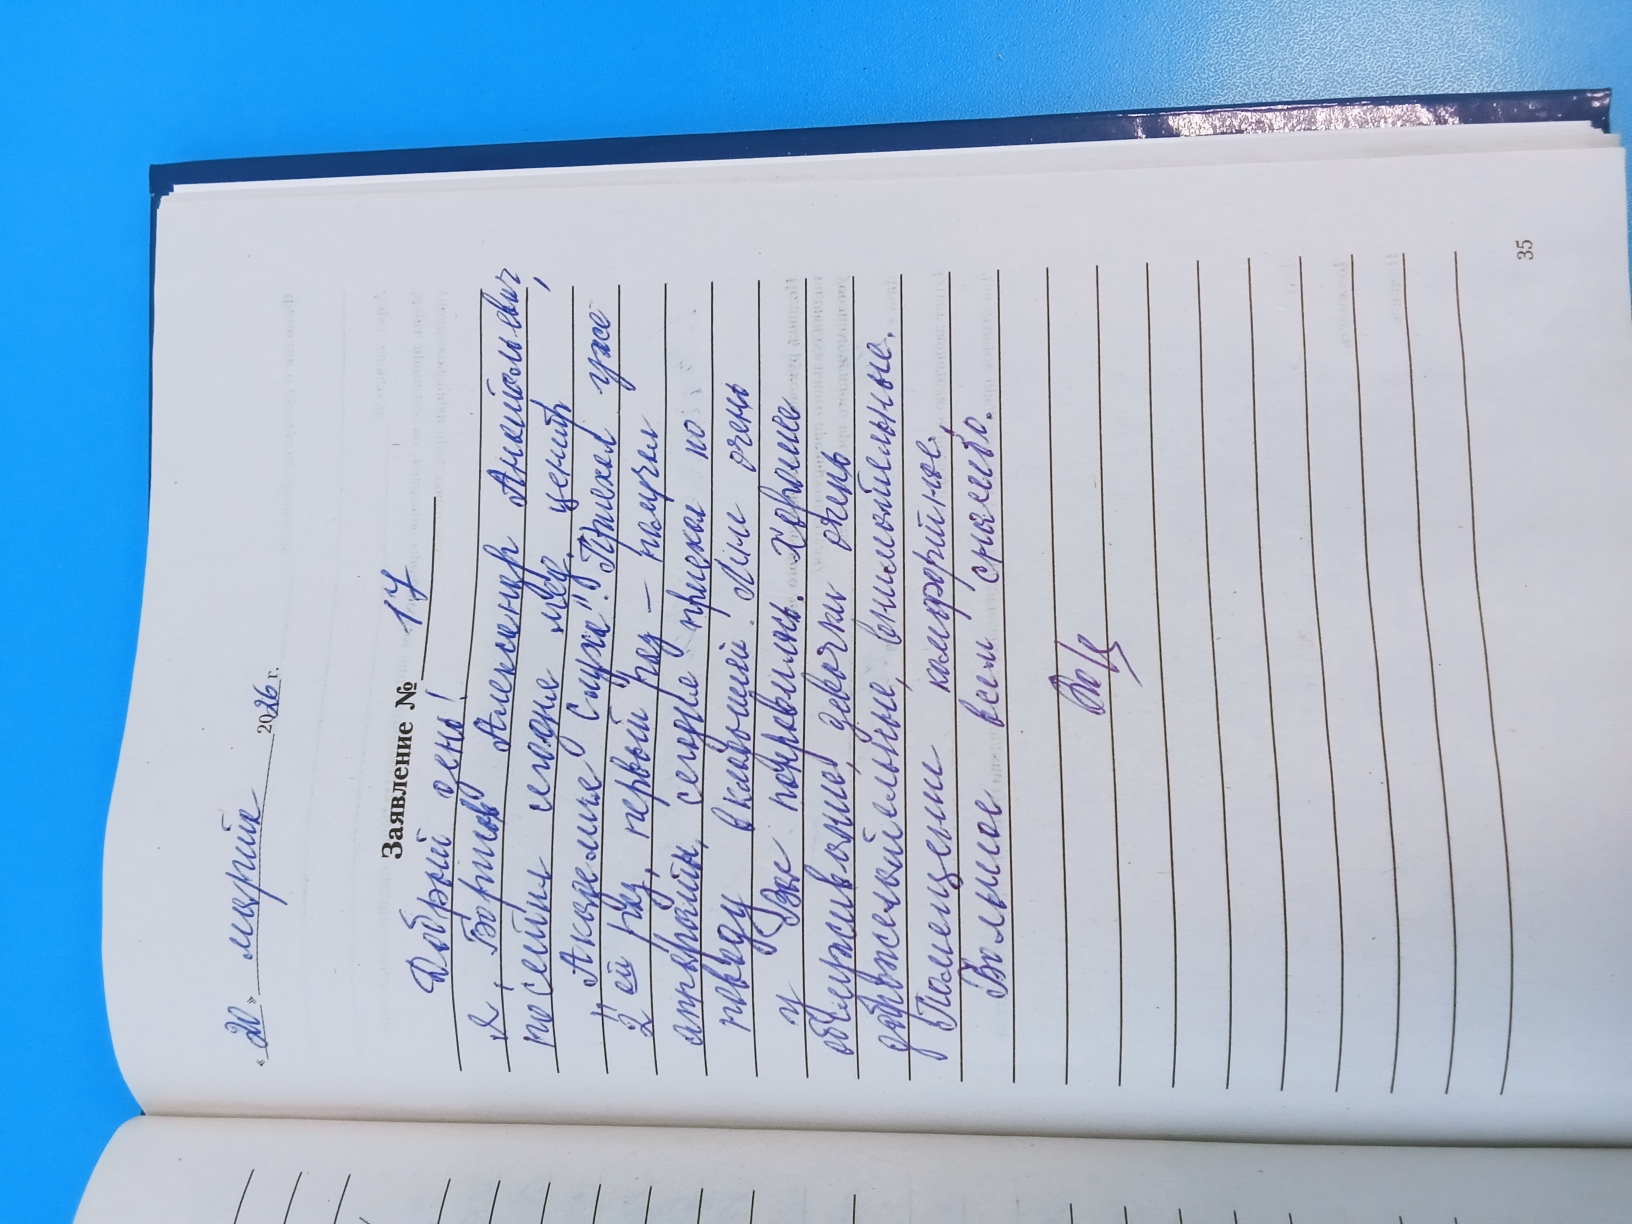 «20» марта 2026 г.
Заявление № 17
Добрый день!
Я, Борисов Александр Анатольевич,
посетил сегодня мед. центр
"Академия Слуха". Приехал уже
2ой раз, первый раз – получил
аппараты, сегодня приехал по
поводу вкладышей. Мне очень
у Вас понравилось. Хорошее
обслуживание, девочки очень
доброжелательные, внимательные.
Помещение комфортное,
Большое всем спасибо.
35